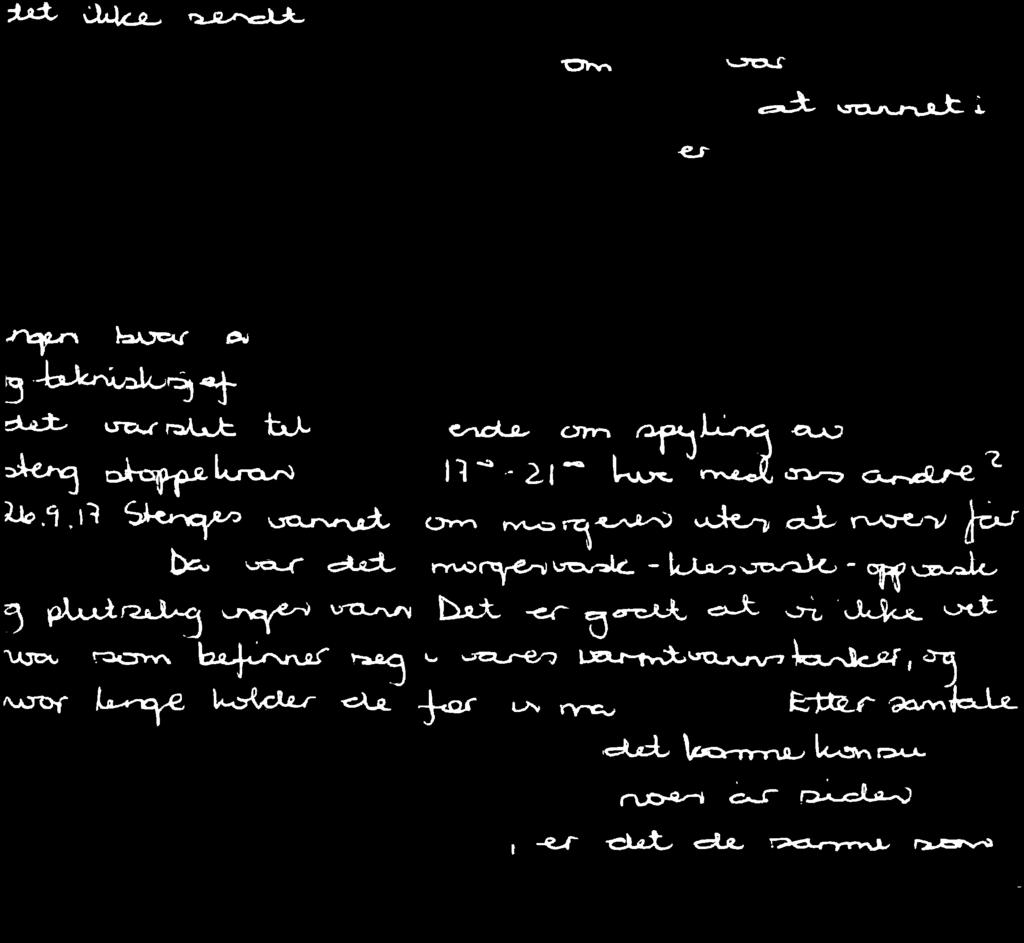 det ikke sendt
om var
at vannet i
er
ngen svar a
g teknisk sjef
det varslet tel ende om spyling av
steng stoppekran 17⁰⁰-21⁰⁰ hva med oss andre?
26.9.17 Stenges vannet om morgenen uten at noen får
Da var det morgenvask - klesvask - oppvask
g plutselig ingen vann Det er godt at vi ikke vet
va som befinner seg i våres varmtvannstanker, og
vor lenge holder de før vi må Etter samtale
det komme konsu
noen år siden
, er det de samme som